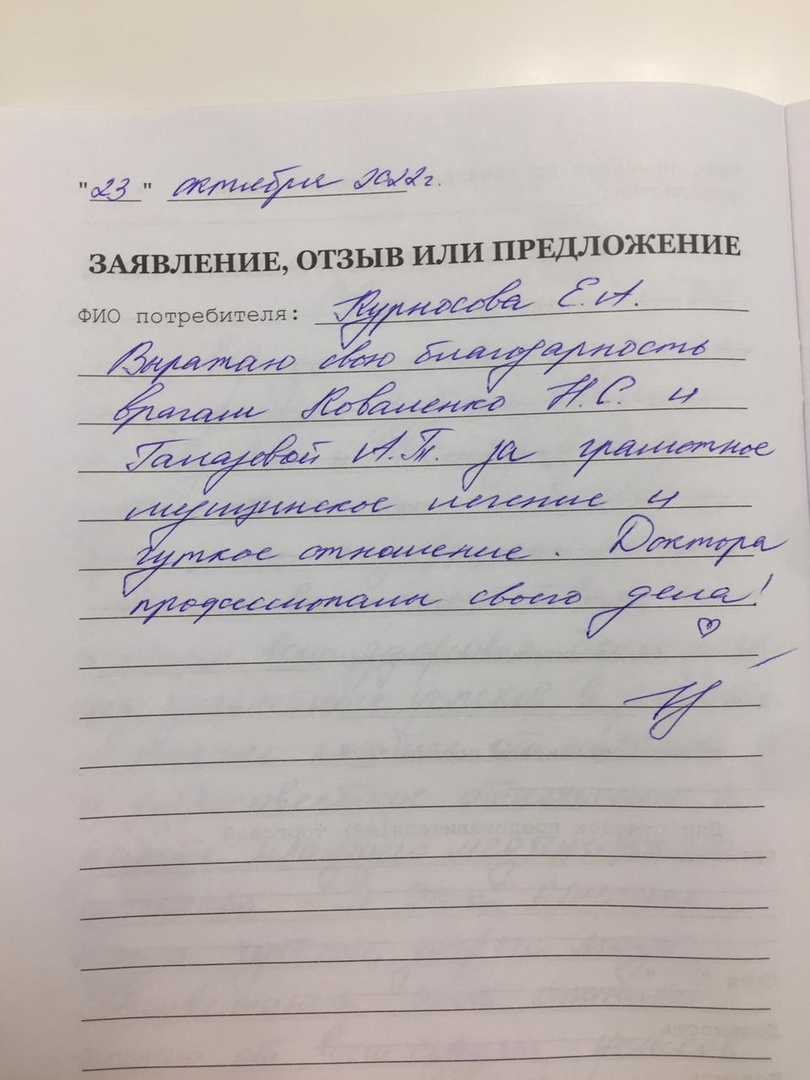 "23" октября 2022г.
ЗАЯВЛЕНИЕ, ОТЗЫВ ИЛИ ПРЕДЛОЖЕНИЕ
ФИО потребителя: Курносова Е.А.
Выражаю свою благодарность
врачам Коваленко Н.С. и
Гамазовой А.Т. за грамотное
медицинское лечение и
чуткое отношение. Доктора
профессионалы своего дела!